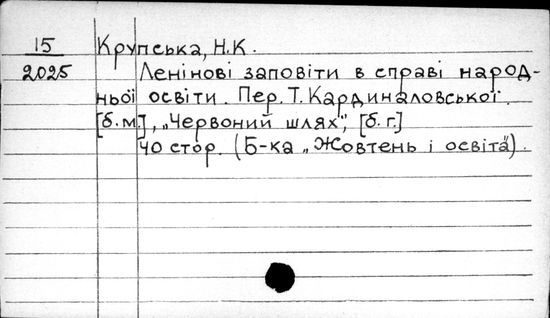 15 Крупська, Н.К.
2025 Ленінові заповіти в справі народ-
ньої освіти. Пер. Т. Кардиналовської.
[б.м.], „Червоний шлях", [б.г.]
40 стор. (Б-ка „Жовтень і освіта").